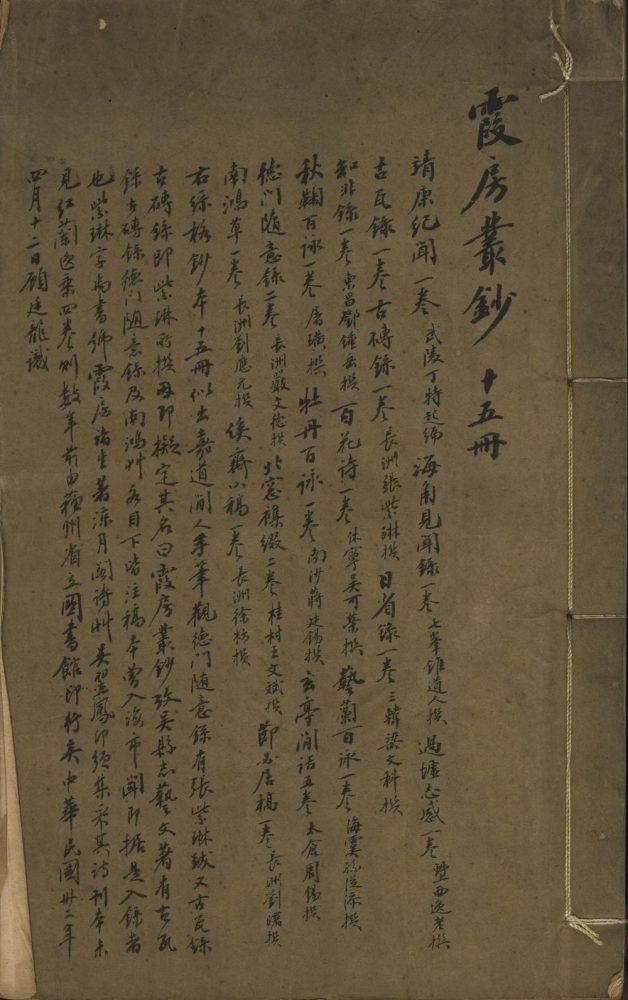 霞房叢鈔 十五冊
靖康紀聞一卷 武陵丁特起編 海角見聞錄一卷 七峯樵道人撰 過墟志感一卷 墅西逸叟撰
古瓦錄一卷 古磚錄一卷 長洲張紫琳撰 日省錄一卷 三韓梁文科撰
知非錄一卷 東昌鄧鍾岳撰 百花詩一卷 休寧吴可葉撰 藝蘭百詠一卷 海虞孫從添撰
秋鞠百詠一卷 屠璜撰 牡丹百詠一卷 南沙蔣廷錫撰 玄亭閒話五卷 太倉周錫撰
德門隨意錄二卷 長洲嚴文德撰 北窓襍綴二卷 桂村王文斌撰 節必居稿一卷 長洲劉曙撰
南鴻草一卷 長洲劉應元撰 俟齋小稿一卷 長洲徐枋撰
右綠格鈔本十五冊似出嘉道間人手筆觀德門隨意錄有張紫琳跋又古瓦錄
古磚錄即紫琳所撰因即擬定其名曰霞房叢鈔攷吴縣志藝文著有古瓦
錄古磚錄德門隨意錄及南鴻艸各目下皆注稿本曾入滄市聞即據是入錄者
也紫琳字禹書號霞房諸生著深月閣詩艸吴翌鳳印須集采其詩刊本未
見紅蘭逸乗四卷則數年前由蘇州省立圖書館印行矣中華民國卅二年
四月十二日顧廷龍識